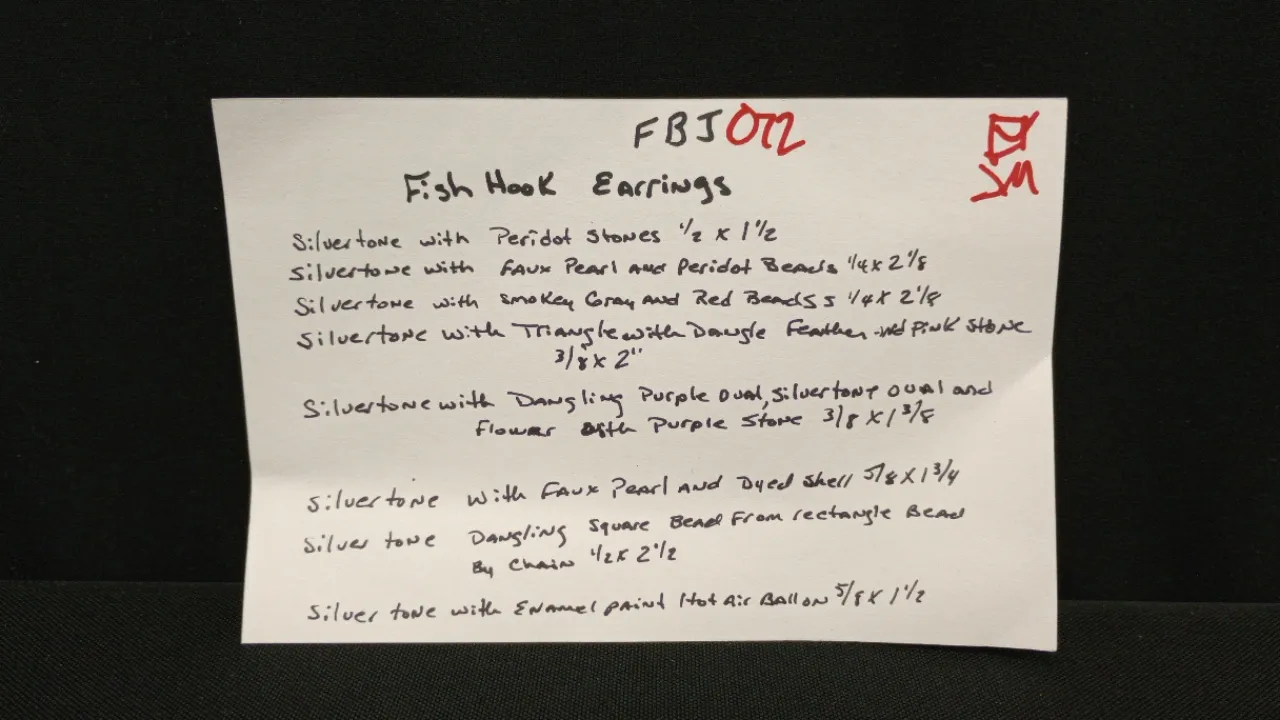 FBJ072
Fish Hook Earrings
JM
Silvertone with Peridot Stones 1/2 x 1 1/2
Silvertone with Faux Pearl and Peridot Beads 1/4 x 2 1/8
Silvertone with Smokey Gray and Red Beads 1/4 x 2 1/8
Silvertone with Triangle with Dangle Feather Pink Stone
3/8 x 2"
Silvertone with Dangling Purple oval, silvertone oval and
Flower with Purple Stone 3/8 x 1 3/8
Silvertone with Faux Pearl and Dyed Shell 5/8 x 1 3/4
Silver tone Dangling Square Bead From rectangle Bead
By Chain 1/2 x 2 1/2
Silver tone with Enamel paint Hot Air Ballon 5/8 x 1 1/2